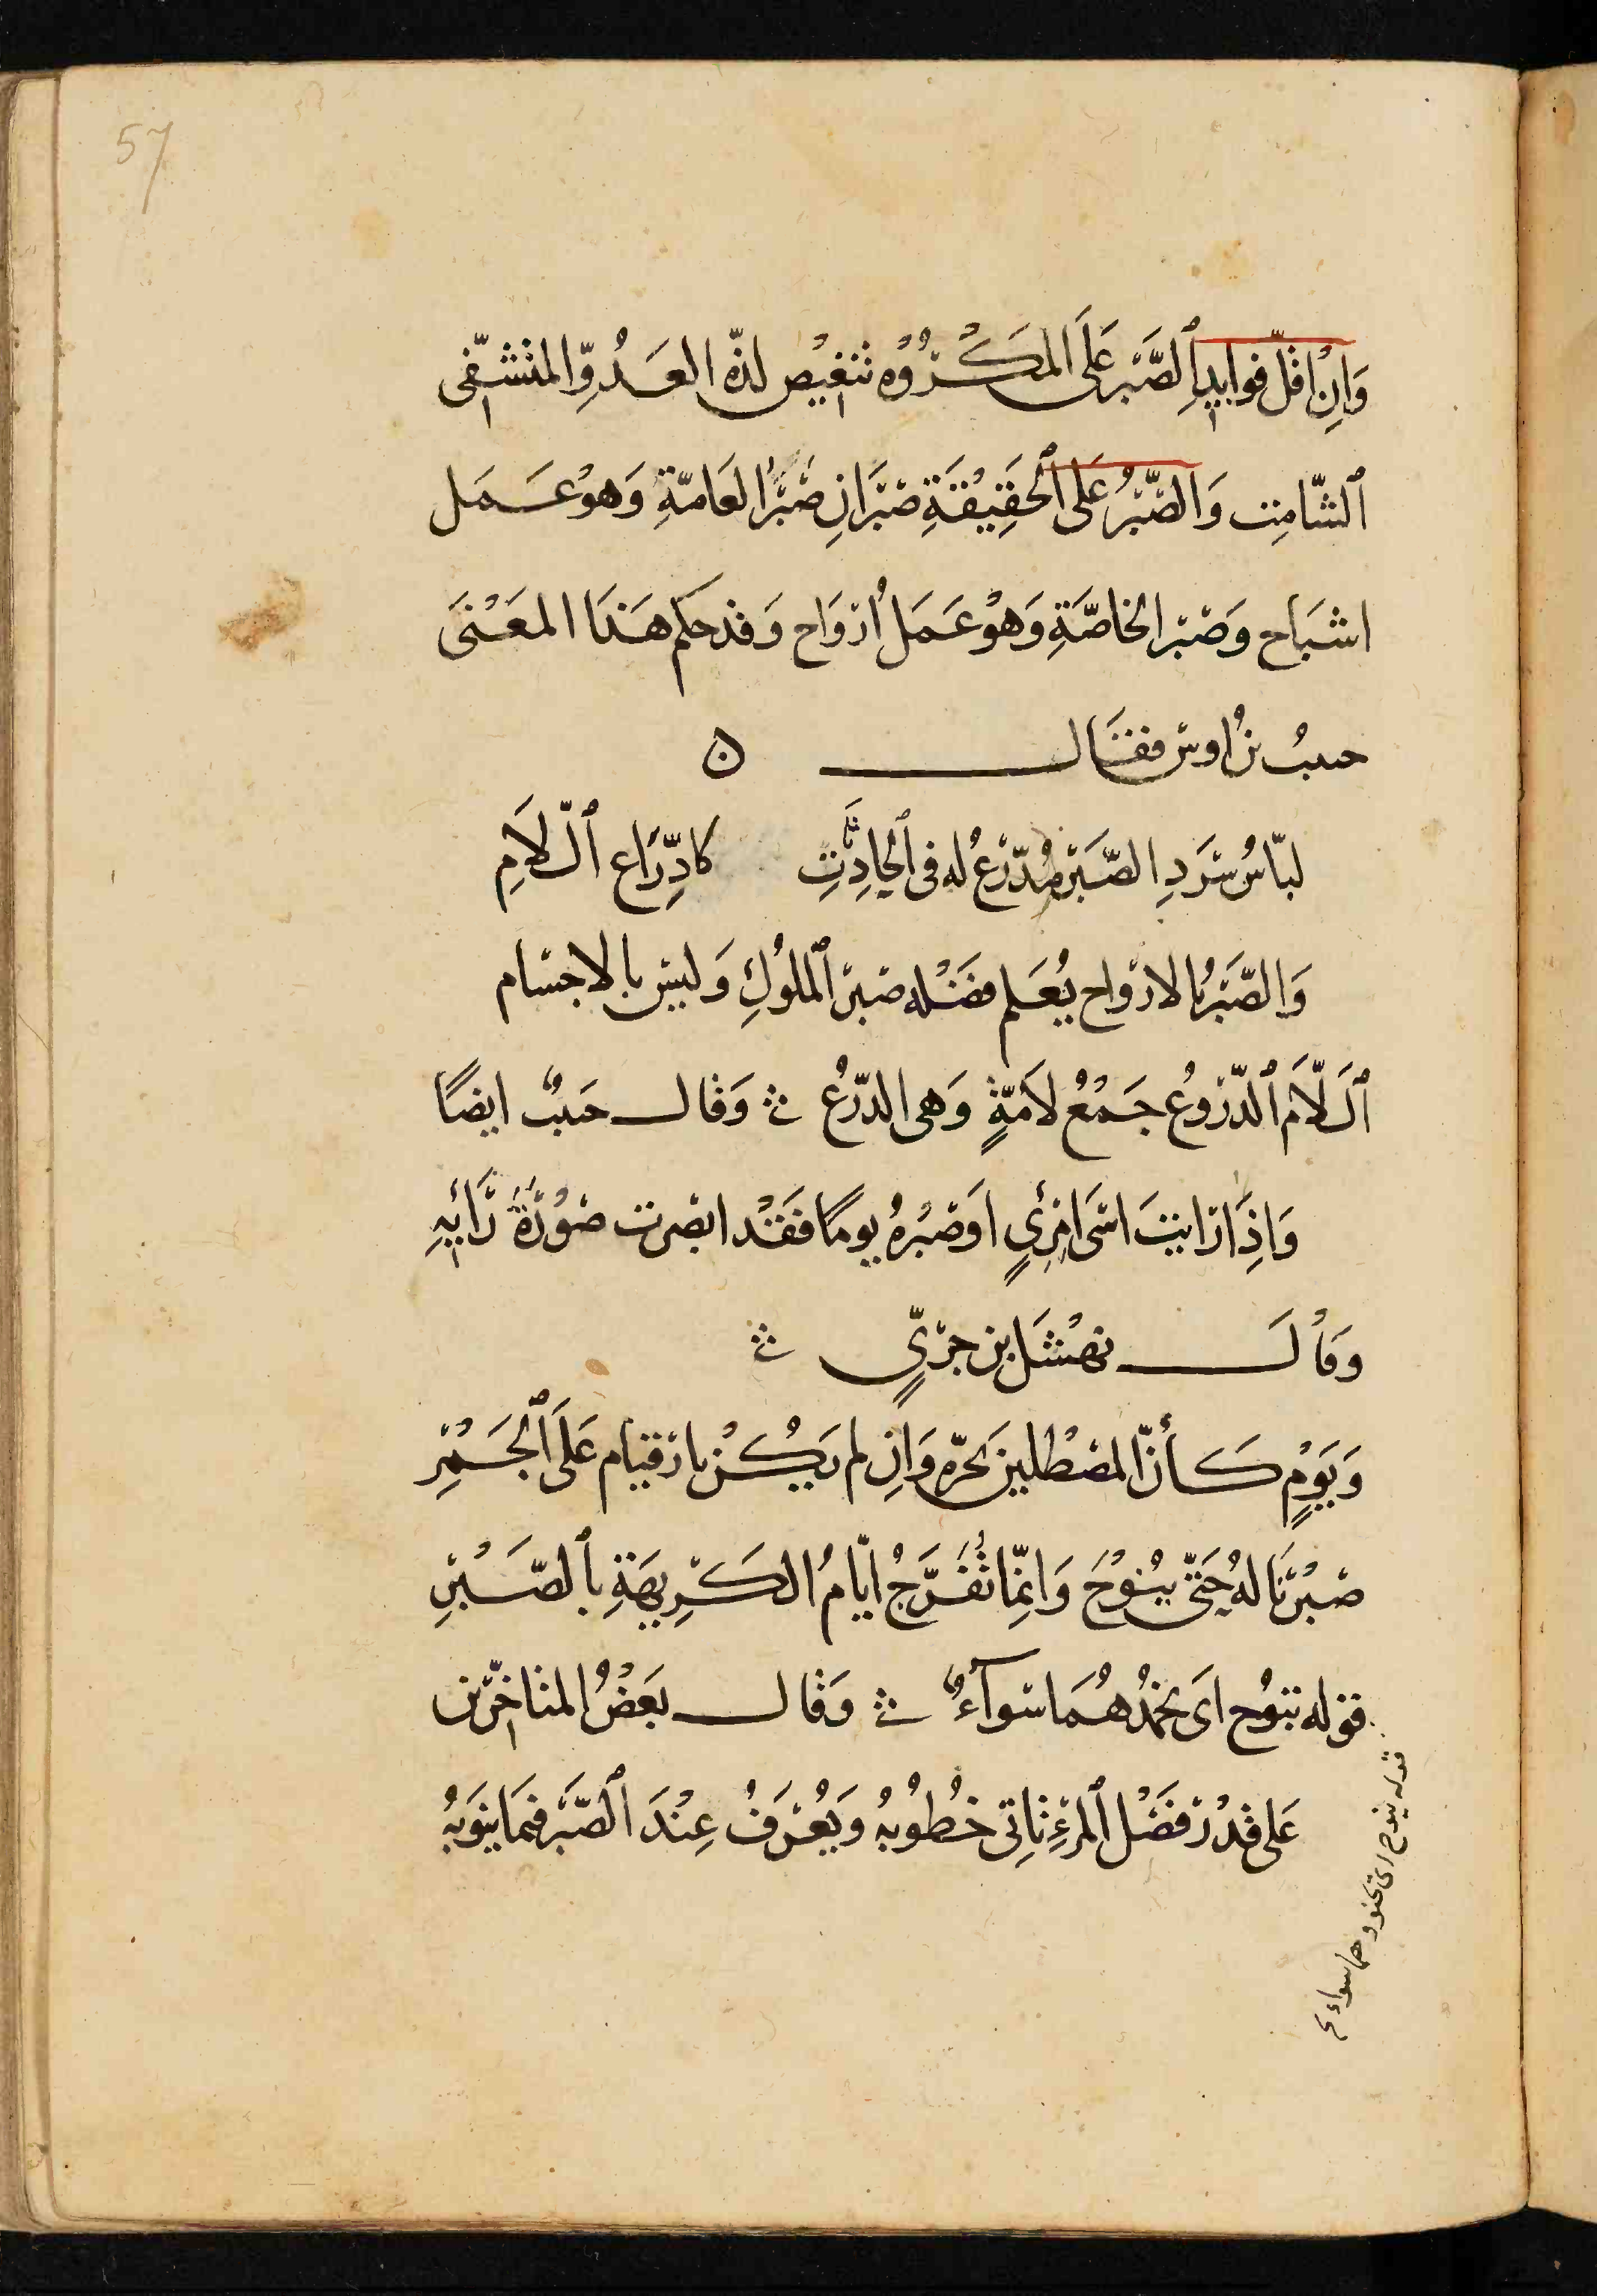 57
وَاِنْ اقلّ فوايدِ الصَّبْر عَلَى المكْرُوْه تنغيْص لذّه العَدُوِّ المتشفّى
الشّامِت وَالصَّبْرُ عَلى الحَقِيْقَةِ صَبْرَانِ صَبْرُ العَامّةِ وَهوُ عَمَل
اشبَاح وَصَبْر الخاصَّةِ وَهوْ عَمَل أرْوَاح وَقد حكم هَذَا المعْنَى
حبيبُ بنُ اوس فقَال ن
لبّاسُ سَرَدِ الصَّبَرْ مُدّرعُ له فى الحادِثِ كادِّرَاع اللاَمِ
وَالصَّبَرْ بالارواح يُعَلم فضَلْه صبر الملُوكِ وَليس بالاجسام
اَللاَّمَ الدّروُع جَمْعُ لاَمَةٍ وَهى الدّرْعُ وَقال حبيبٌ ايضًا
وَاِذَا رَاييتَ اسَى امْرِىٍ اَوصَبْرهُ يومًا فقَدْ ابصرت صوُرَةَ رَايهِ
وقالَ نهْشَل بن جرىٍّ
وَيَوْمٍ كأنّ المصْطلينَ بحَرّه وَانِ لم يكُنْ نار قيام عَلَى الجَمْرِ
صَبْرَنا لهُ حَتّى يبُوْخَ وَانمّا تُفَرَّجُ ايّامُ الكَرِيهَةِ بالصَّبْرِ
قوله تبوُخ اى يخمدُ هُمَا سَوآءٌ وَقال بعَضُ المتاخّرين
عَلى قدْرِ فضَل المرْءِ تَاتِى خطُوبُهُ وَيُعْرَفُ عِنْدَ الصَّبَر فيمَا ينوَبُهُ
قوله يبوخ اى تخمد وهما سواء